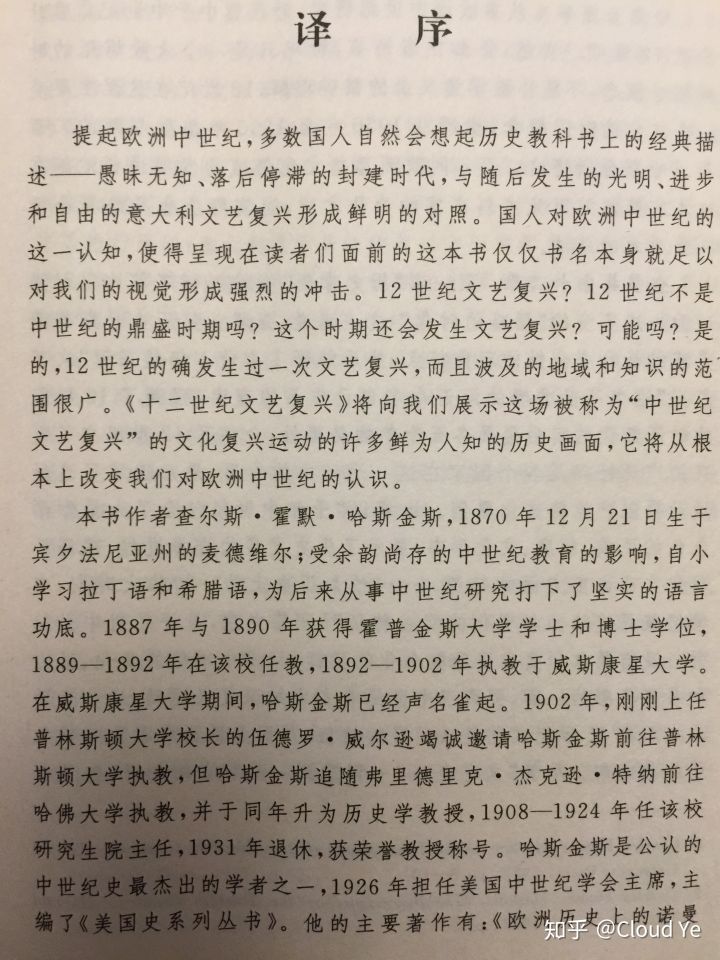 译 序
提起欧洲中世纪,多数国人自然会想起历史教科书上的经典描
述——愚昧无知、落后停滞的封建时代,与随后发生的光明、进步
和自由的意大利文艺复兴形成鲜明的对照。国人对欧洲中世纪的
这一认知,使得呈现在读者们面前的这本书仅仅书名本身就足以
对我们的视觉形成强烈的冲击。12 世纪文艺复兴? 12 世纪不是
中世纪的鼎盛时期吗? 这个时期还会发生文艺复兴? 可能吗? 是
的,12 世纪的确发生过一次文艺复兴,而且波及的地域和知识的范
围很广。《十二世纪文艺复兴》将向我们展示这场被称为“中世纪
文艺复兴”的文化复兴运动的许多鲜为人知的历史画面,它将从根
本上改变我们对欧洲中世纪的认识。
本书作者查尔斯·霍默·哈斯金斯,1870 年 12 月 21 日生于
宾夕法尼亚州的麦德维尔;受余韵尚存的中世纪教育的影响,自小
学习拉丁语和希腊语,为后来从事中世纪研究打下了坚实的语言
功底。1887 年与 1890 年获得霍普金斯大学学士和博士学位,
1889—1892 年在该校任教,1892—1902 年执教于威斯康星大学。
在威斯康星大学期间,哈斯金斯已经声名雀起。1902 年,刚刚上任
普林斯顿大学校长的伍德罗·威尔逊竭诚邀请哈斯金斯前往普林
斯顿大学执教,但哈斯金斯追随弗里德里克·杰克逊·特纳前往
哈佛大学执教,并于同年升为历史学教授,1908—1924 年任该校
研究生院主任,1931 年退休,获荣誉教授称号。哈斯金斯是公认的
中世纪史最杰出的学者之一,1926 年担任美国中世纪学会主席,主
编了《美国史系列丛书》。他的主要著作有:《欧洲历史上的诺曼
知乎 @Cloud Ye